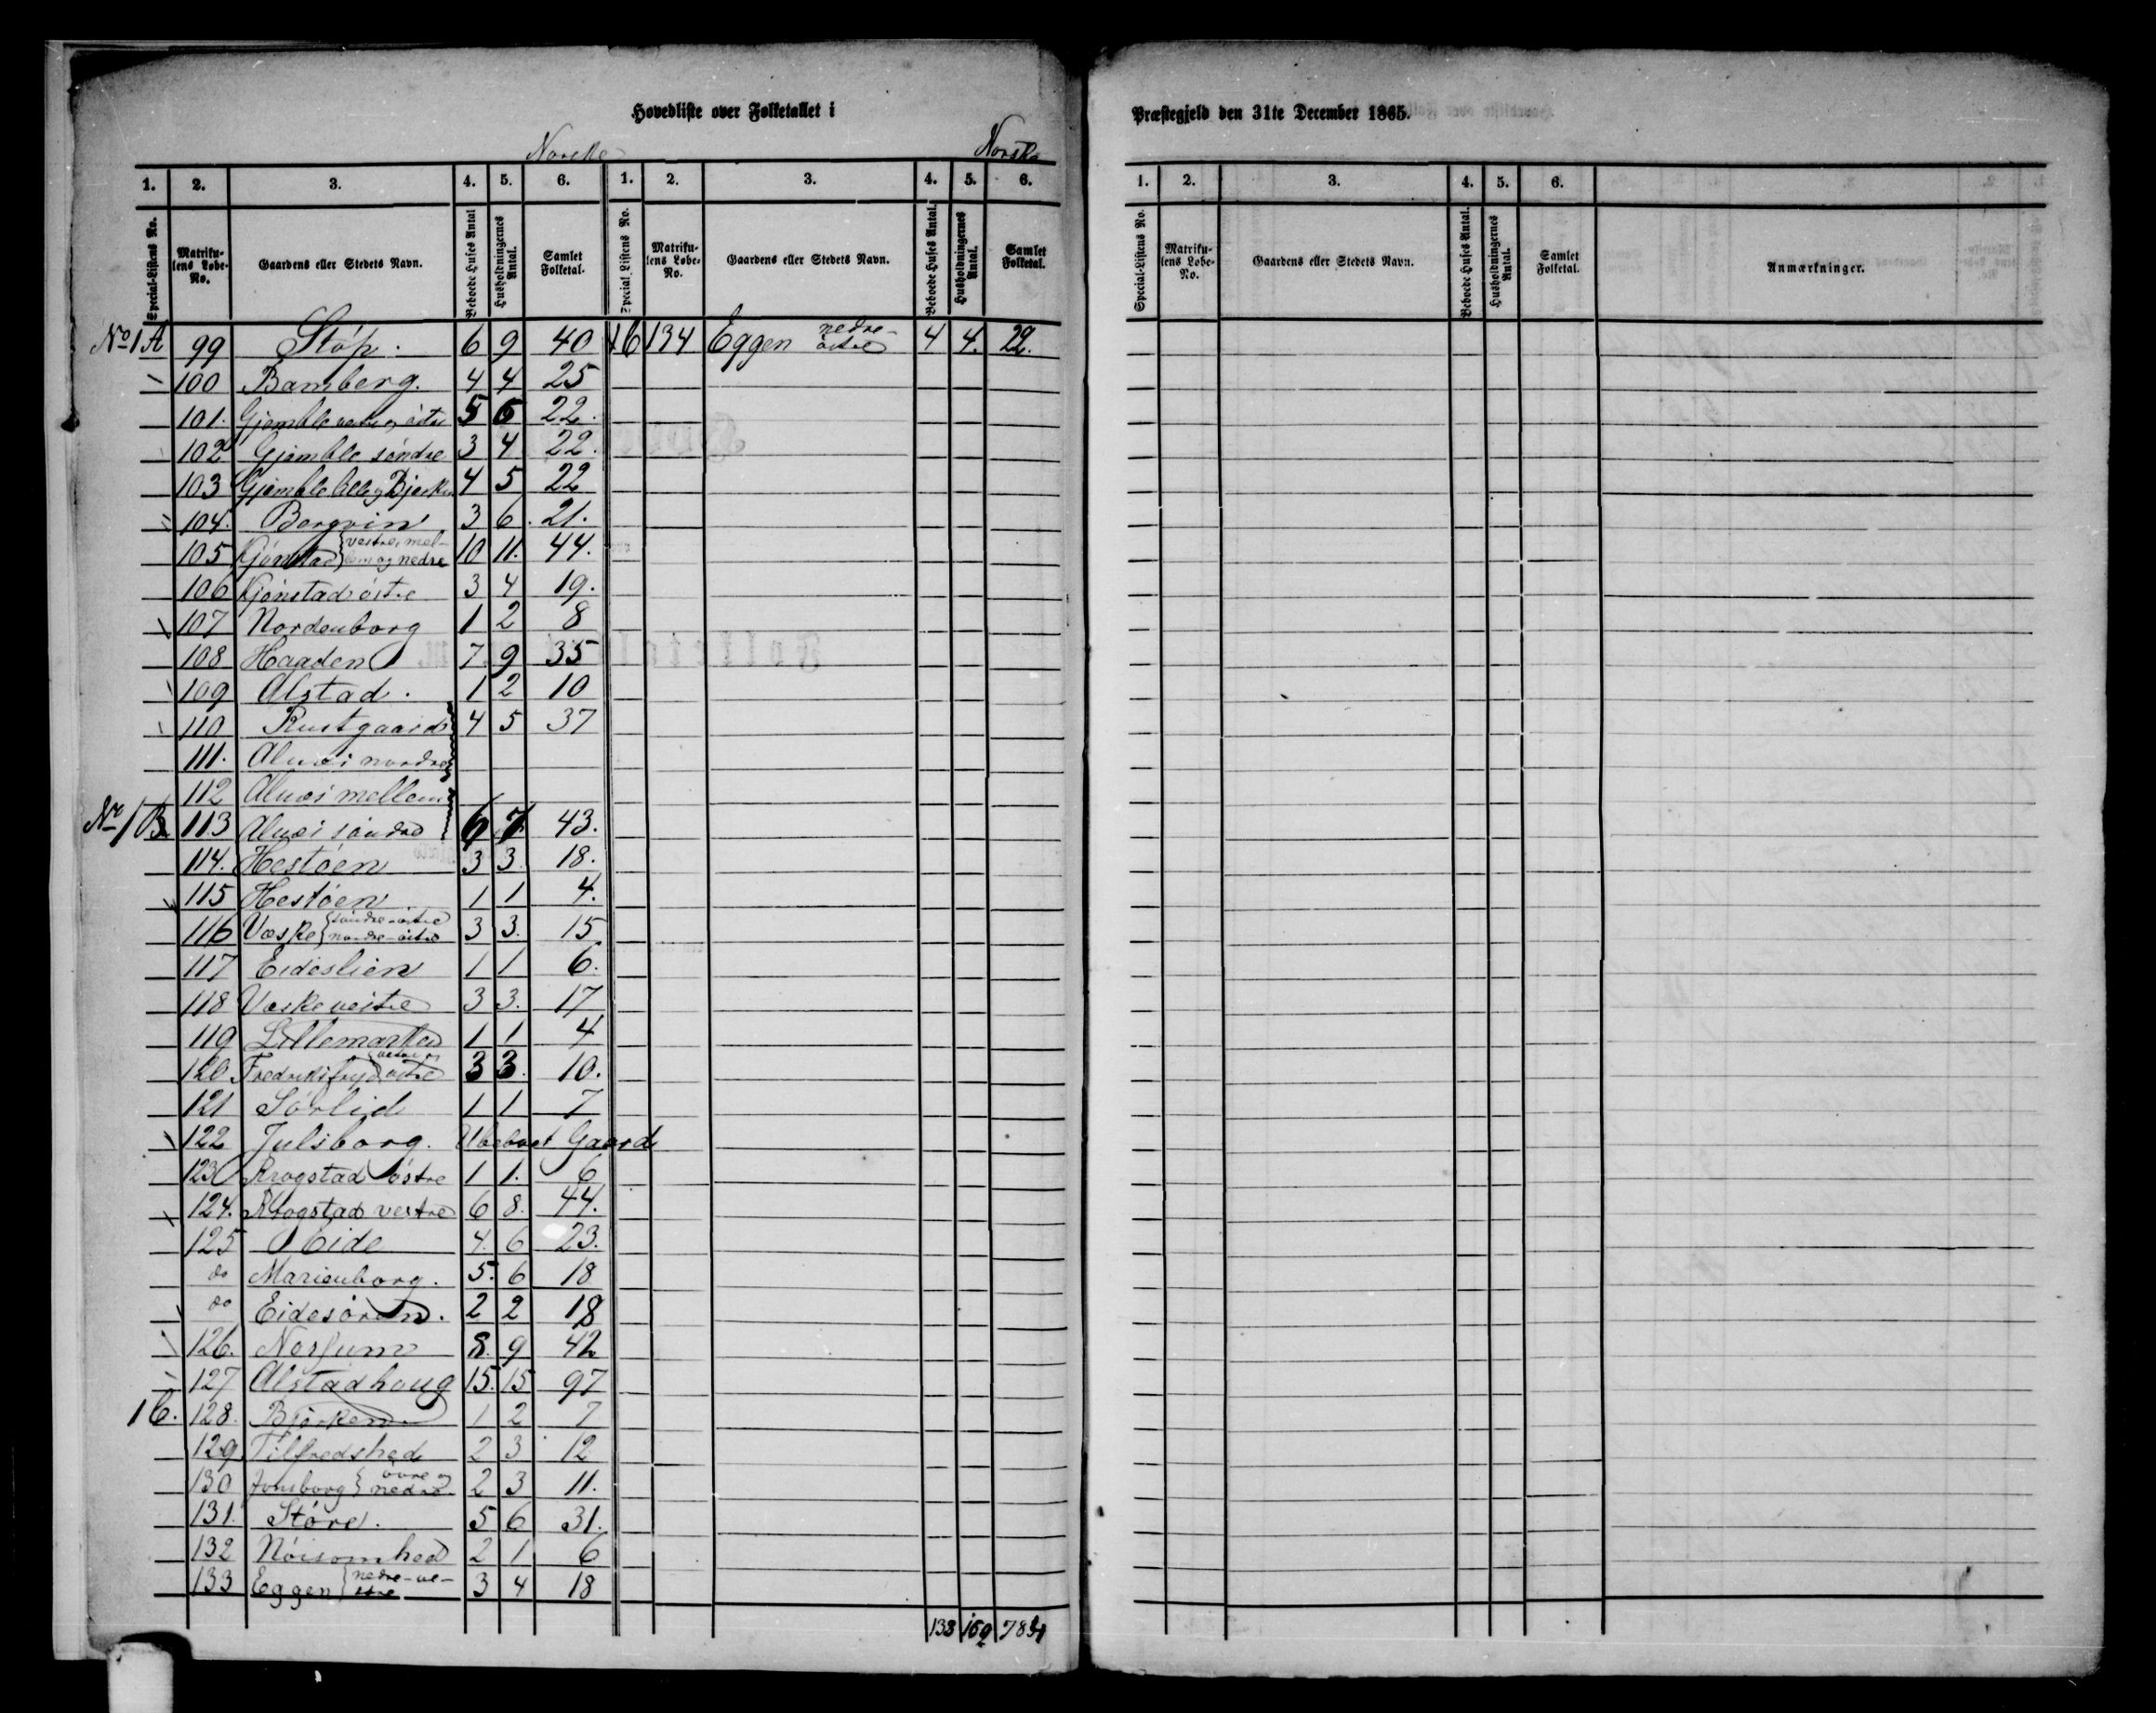 Hovedliste over Folketallet i
Præstegjeld den 31te December 1865.
Norske Norske
1. 2. 3. 4. 5. 6. 1. 2. 3. 4. 5. 6.
1. 2. 3. 4. 5. 6.
Special-Listens No. Matriku-lens Løbe-No. Gaardens eller Stedets Navn. Beboede Huses Antal Husholdningernes Antal. Samlet Folketal. Special Listens No. Matriku-lens Løbe-No. Gaardens eller Stedets Navn. Beboede Huses Antal. Husholdningernes Antal. Samlet Folketal.
Special-Listens No. Matriku-lens Løbe-No. Gaardens eller Stedets Navn. Beboede Huses Antal. Husholdningernes Antal. Samlet Folketal. Anmærkninger.
No 1 A 99 Støp. 6 9 40 16 134 Eggen nedre-østre 4 4. 22.
100 Bamberg. 4 4 25
101. Gjemble vestre og østre 5 6 22.
102 Gjemble søndre 3 4 22.
103 Gjemble lille og Bjerken 4 5 22
104. Bergvin 3 6. 21.
105 Kjønstad {vestre, mel-lem og nedre 10 11. 44.
106 Kjønstad østre 3 4 19.
107 Nordenborg 1 2 8
108 Haaden 7 9 35
109 Alstad. 1 2 10
110 Rustgaard 4 5 37
111. Alnæs nordre
112 Alnæs mellem
No 1 B. 113 Alnæs søndre 6 7 43.
114. Hestøen 3 3 18.
115 Hestøen 1 1 4.
116 Væske {søndre-østre nordre-østre 3 3. 15
117 Eideslien 1 1 6.
118 Væske vestre 3 3. 17
119 Lillemarken 1 1 4
120 Fredriksfryd {vestre og østre 3 3. 10.
121 Sørlid 1 1 7
122 Julsborg. Ubeboet Gaard
123 Krogstad østre 1 1. 6
124. Krogstad vestre 6 8. 44.
125 Eide 4. 6 23.
do Marienborg. 5. 6 18
do Eidesøren. 2 2 18
126. Nessum 8. 9 42
127 Alstadhoug 15. 15 97
16. 128. Bjørken 1 2 7
129 Tilfredshed 2 3 12
130 Jonsborg {øvre og nedre 2 3 11.
131. Støre. 5 6 31.
132 Nøisomhed 2 1 6
133 Eggen {nedre-ve-stre 3 4 18
138 169 784